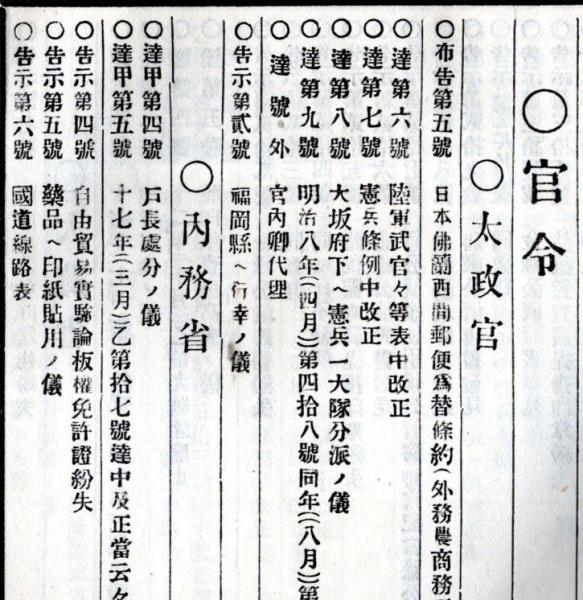 〇官令
〇太政官
〇布告第五號 日本佛蘭西間郵便爲替條約(外務農商務
〇達第六號 陸軍武官々等表中改正
〇達第七號 憲兵條例中改正
〇達第八號 大坂府下ヘ憲兵一大隊分派ノ儀
〇達第九號 明治八年(四月)第四拾八號同年(八月)第
〇達號外 宮内卿代理
〇告示第貳號 福岡縣ヘ行幸ノ儀
〇内務省
〇達甲第四號 戸長處分ノ儀
〇達甲第五號 十七年(三月)乙第拾七號達中及正當云々
〇告示第四號 自由貿易實驗論板權免許證紛失
〇告示第五號 藥品ヘ印紙貼用ノ儀
〇告示第六號 國道線路表